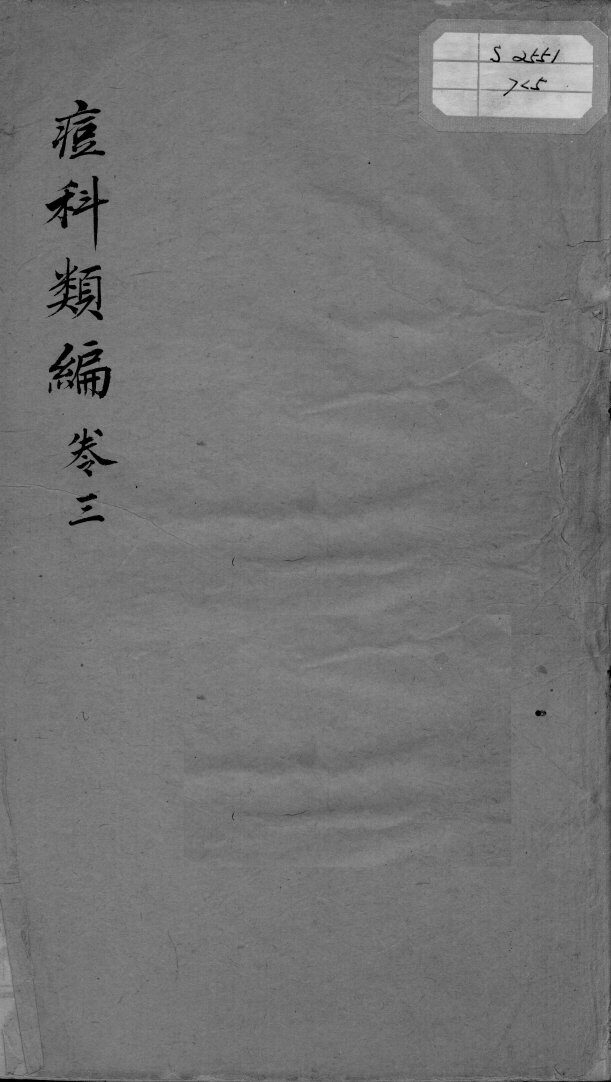 痘科類編 卷三
S 2551
7<5